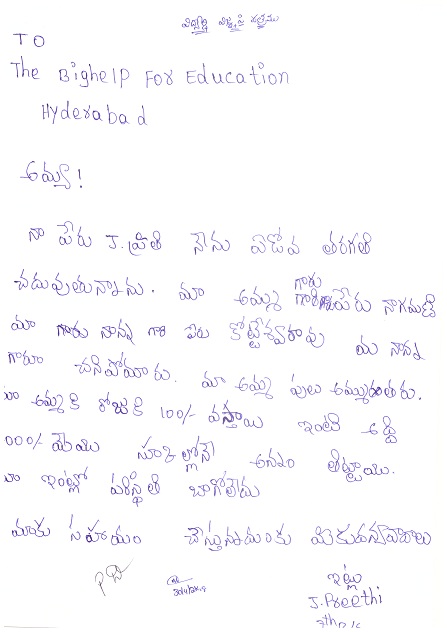 విద్యార్థి విజ్ఞప్తి పత్రము
TO
The Bighelp For Education
Hyderabad
అమ్మా!
నా పేరు J. ప్రీతి నేను ఏడోవ తరగతి
చదువుతున్నాను. మా అమ్మ గారు పేరు నాగమణి
మా నాన్న గారి పేరు కోట్టేశ్వరావు మా నాన్న
గారూ చనిపోయారు. మా అమ్మ పులు అమ్ముతుంతరు.
మా అమ్మ కి రోజుకి 100/- వస్తాయి ఇంటికి
000/- స్కూల్లోనే అన్నం తిట్టాయి.
మా ఇంట్లో పరిస్థితి బాగోలేదు
మాకు సహాయం చేస్తున్నందుకు మీకు ధన్యవాదాలు
ఇట్లు
J. Preethi
7th